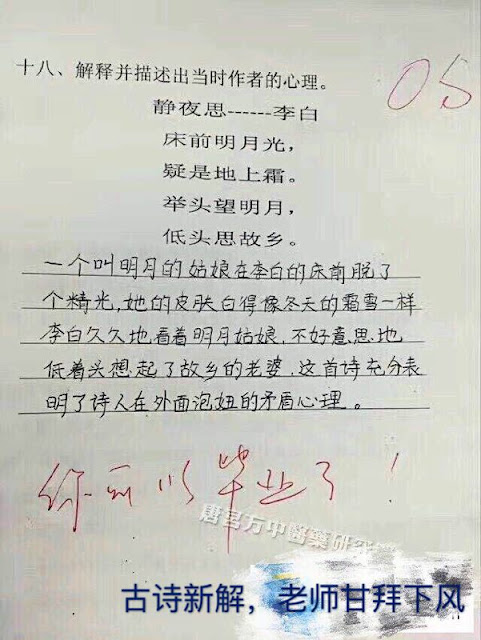 十八、解释并描述出当时作者的心理。
05
静夜思------李白
床前明月光，
疑是地上霜。
举头望明月，
低头思故乡。
一个叫明月的姑娘在李白的床前脱了
个精光，她的皮肤白得像冬天的霜雪一样
李白久久地看着明月姑娘，不好意思地
低着头想起了故乡的老婆，这首诗充分表
明了诗人在外面泡妞的矛盾心理。
你可以毕业了！
唐宫方中醫藥研究
古诗新解，老师甘拜下风